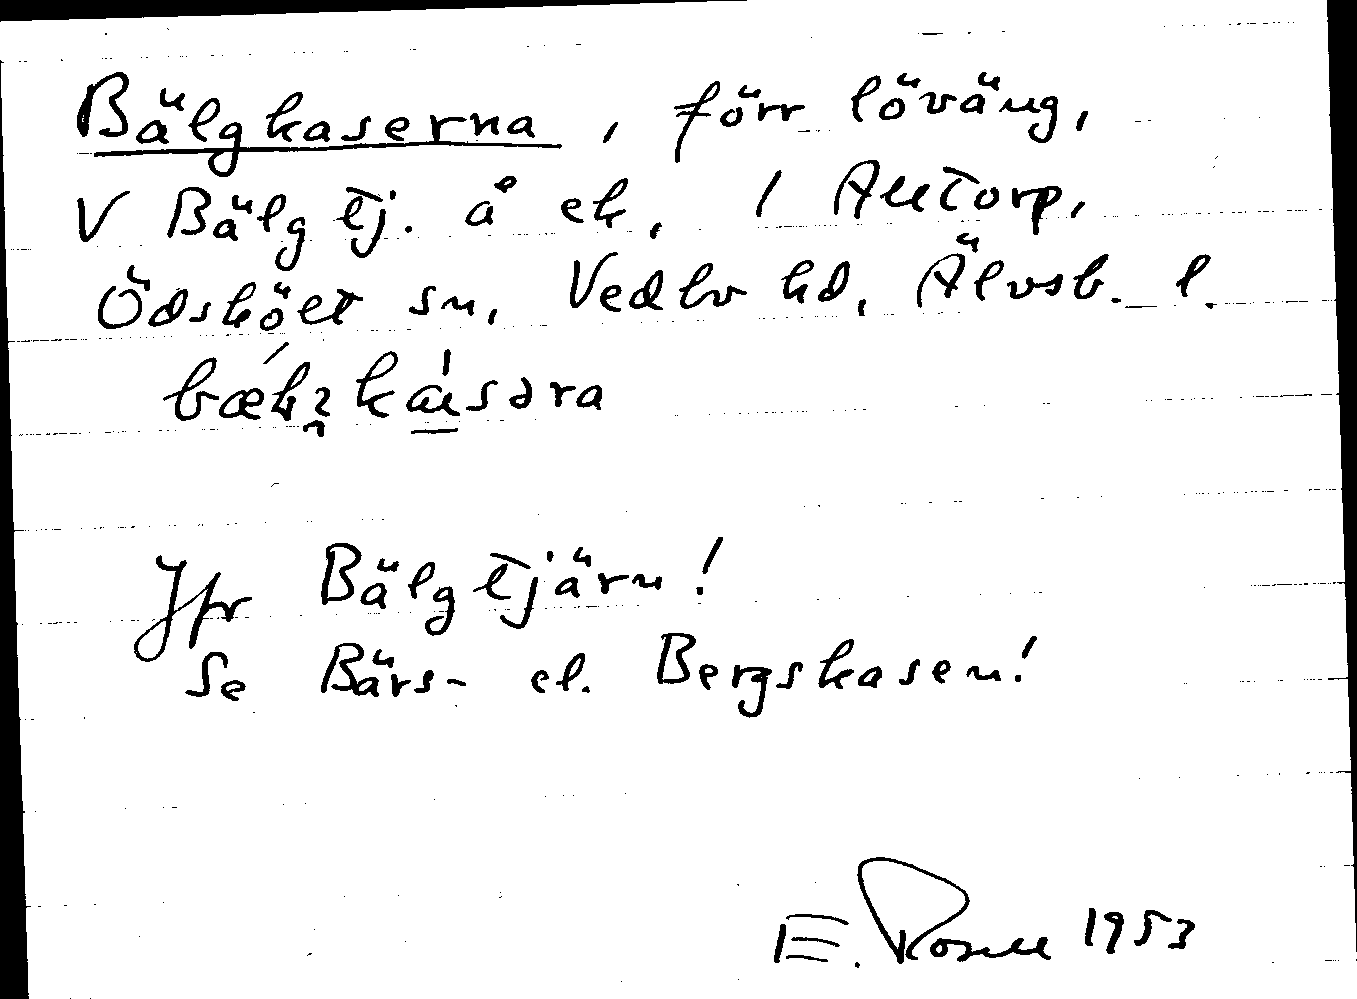 Bälgkaserna, förr löväng,
V Bälgtj. å ek, 1 Alltorp,
Ödskölt sn, Vedbo hd, Älvsb. l.
Jfr Bälgtjärn!
Se Bärs- el. Bergskasen!
E. Rosell 1953